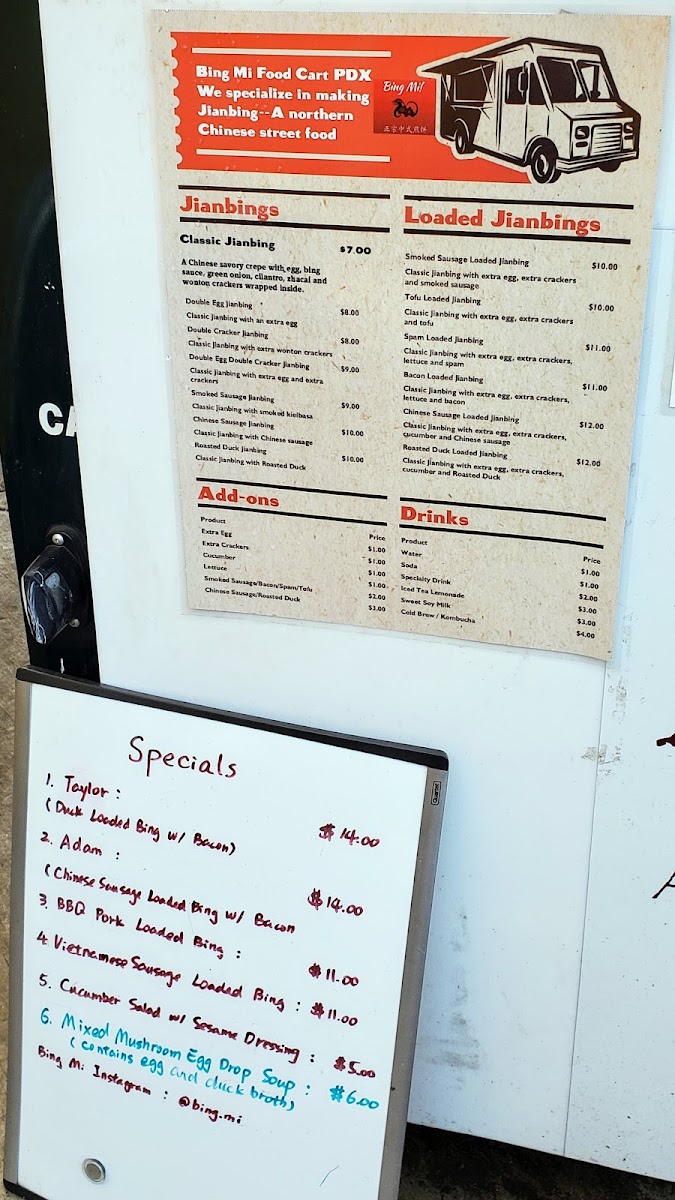 Bing Mi Food Cart PDX
We specialize in making
Jianbing--A northern
Chinese street food
Bing Mi!
正宗中式煎饼
Jianbings
Classic Jianbing $7.00
A Chinese savory crepe with egg, bing
sauce, green onion, cilantro, zhacai and
wonton crackers wrapped inside.
Double Egg Jianbing $8.00
Classic Jianbing with an extra egg
Double Cracker Jianbing $8.00
Classic Jianbing with extra wonton crackers
Double Egg Double Cracker Jianbing $9.00
Classic Jianbing with extra egg and extra
crackers
Smoked Sausage Jianbing $9.00
Classic Jianbing with smoked kielbasa
Chinese Sausage Jianbing $10.00
Classic Jianbing with Chinese sausage
Roasted Duck Jianbing $10.00
Classic Jianbing with Roasted Duck
Loaded Jianbings
Smoked Sausage Loaded Jianbing $10.00
Classic Jianbing with extra egg, extra crackers
and smoked sausage
Tofu Loaded Jianbing $10.00
Classic Jianbing with extra egg, extra crackers
and tofu
Spam Loaded Jianbing $11.00
Classic Jianbing with extra egg, extra crackers,
lettuce and spam
Bacon Loaded Jianbing $11.00
Classic Jianbing with extra egg, extra crackers,
lettuce and bacon
Chinese Sausage Loaded Jianbing $12.00
Classic Jianbing with extra egg, extra crackers,
cucumber and Chinese sausage
Roasted Duck Loaded Jianbing $12.00
Classic Jianbing with extra egg, extra crackers,
cucumber and Roasted Duck
Add-ons
Product Price
Extra Egg $1.00
Extra Crackers $1.00
Cucumber $1.00
Lettuce $1.00
Smoked Sausage/Bacon/Spam/Tofu $2.00
Chinese Sausage/Roasted Duck $3.00
Drinks
Product Price
Water $1.00
Soda $1.00
Specialty Drink $2.00
Iced Tea Lemonade $3.00
Sweet Soy Milk $3.00
Cold Brew / Kombucha $4.00
CA
Specials
Quartet
1. Taylor : $14.00
(Duck Loaded Bing w/ Bacon)
2. Adam : $14.00
(Chinese Sausage Loaded Bing w/ Bacon
3. BBQ Pork Loaded Bing : $11.00
4. Vietnamese Sausage Loaded Bing : $11.00
5. Cucumber Salad w/ Sesame Dressing : $5.00
6. Mixed Mushroom Egg Drop Soup : $6.00
(contains egg and duck broth)
Bing Mi Instagram : @bing.mi